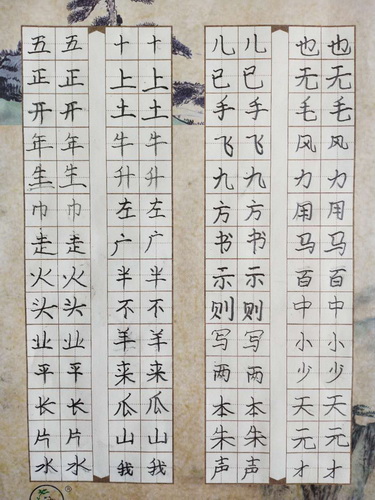 五五十十儿儿也也
正正上上已已无无
开开土土手手毛毛
年年牛牛飞飞风风
生生升升九九力力
巾巾左左方方用用
走走广广书书马马
火火半半示示百百
头头不不则则中中
业业羊羊写写小小
平平来来两两少少
长长瓜瓜本本天天
片片山山朱朱元元
水水我我声声才才